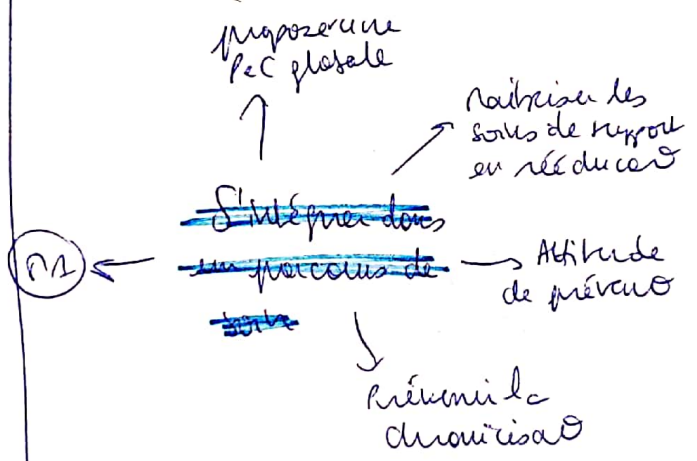 proposer une
PeC globale
Maitriser les
soins de support
en rééducaθ
S'intégrer dans
un parcours de
soins
M1
Attitude
de prévenθ
Prévenir la
chronicisaθ